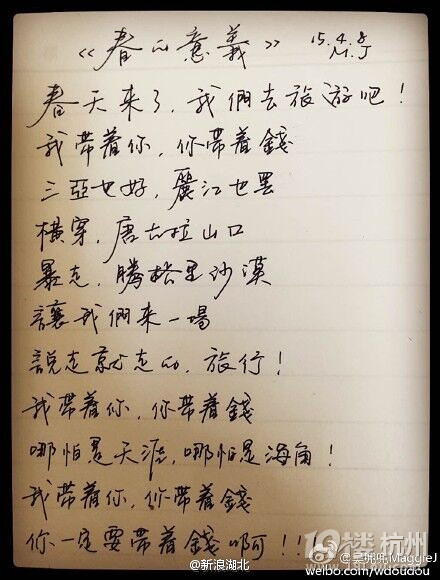 《春的意義》 15.4.8
M.J
春天来了,我們去旅游吧!
我带着你,你带着錢
三亞也好,麗江也罢
橫穿,唐古拉山口
暴走,騰格里沙漠
讓我們来一場
說走就走的,旅行!
我带着你,你带着錢
哪怕是天涯,哪怕是海角!
我带着你,你带着錢
你一定要带着錢啊!!
@新浪湖北
19楼 杭州
MaggieJ
weibo.com/wdoudou